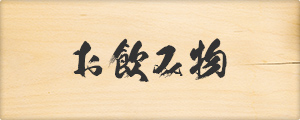 お飲み物